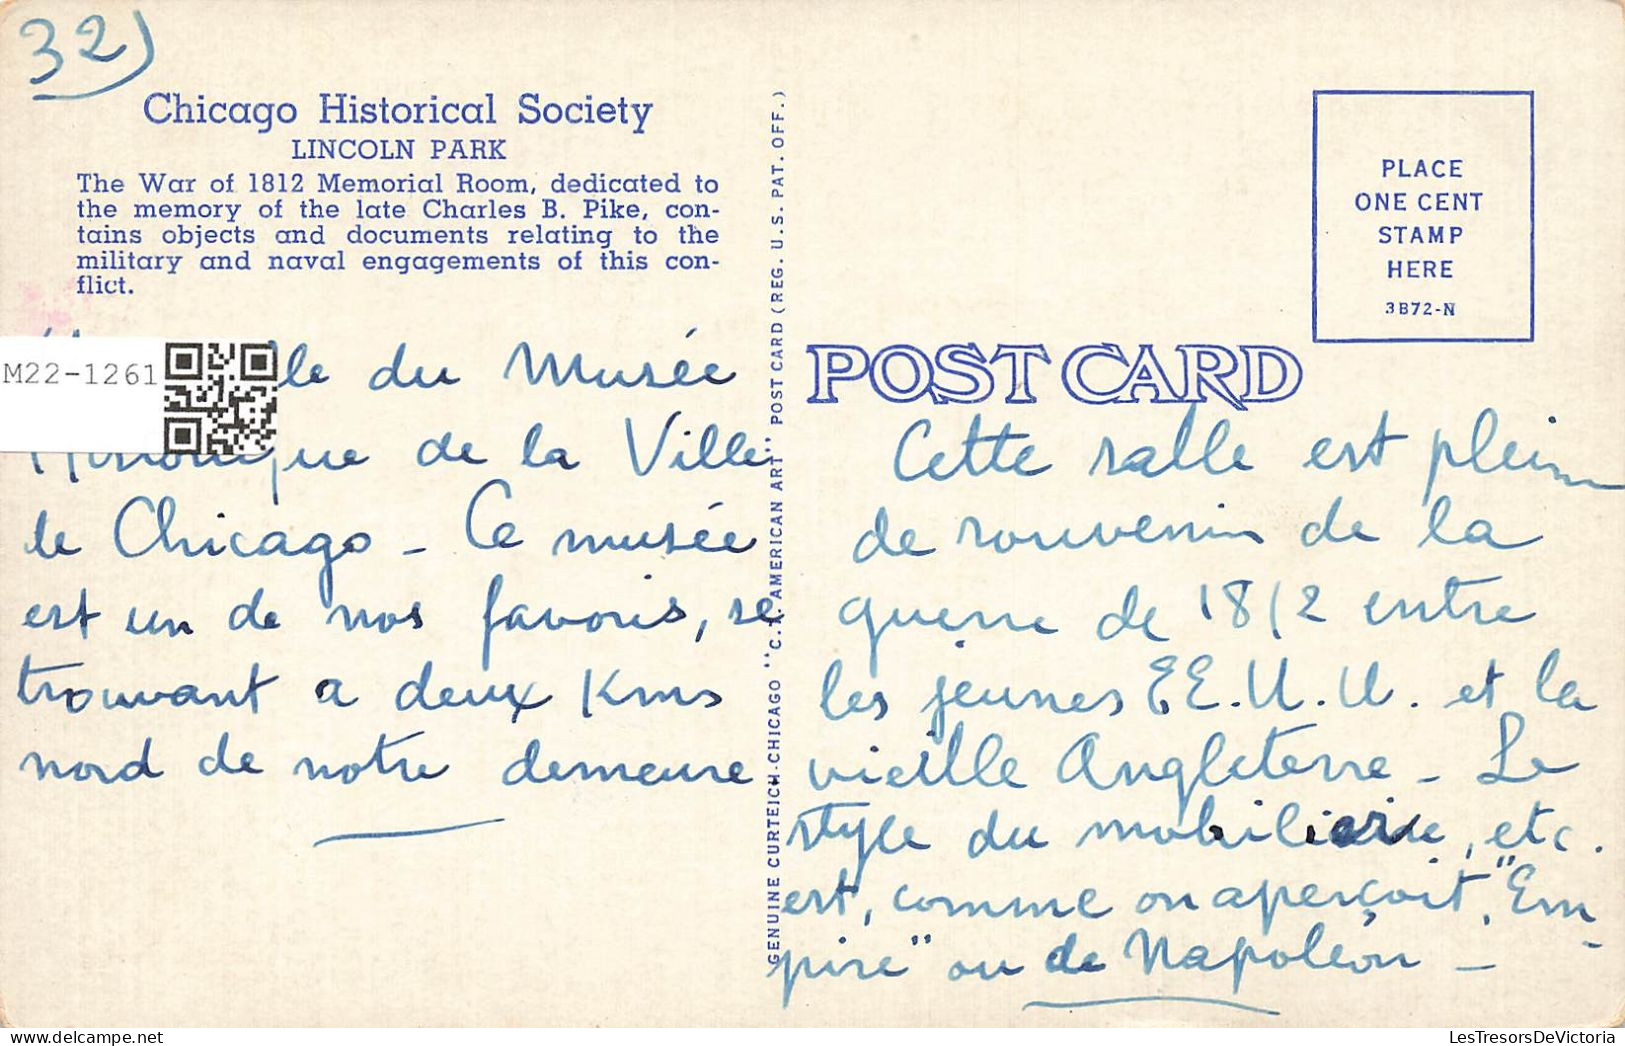 32)
Chicago Historical Society
LINCOLN PARK
The War of 1812 Memorial Room, dedicated to
the memory of the late Charles B. Pike, con-
tains objects and documents relating to the
military and naval engagements of this con-
flict.
M22-1261
du Musée
de la Ville
de Chicago - Ce musée
est un de nos favoris, se
trouvant a deux Kms
nord de notre demeure
GENUINE CURTEICH-CHICAGO "C.T. AMERICAN ART" POST CARD (REG. U.S. PAT. OFF.)
PLACE
ONE CENT
STAMP
HERE
3B72-N
POST CARD
Cette salle est plein
de souvenirs de la
guerre de 1812 entre
les jeunes E.E.U.U. et la
vieille Angleterre - Le
style du mobiliaire, etc.
est, comme on aperçoit, "Em-
pire" ou de Napoléon -
LesTresorsDeVictoria